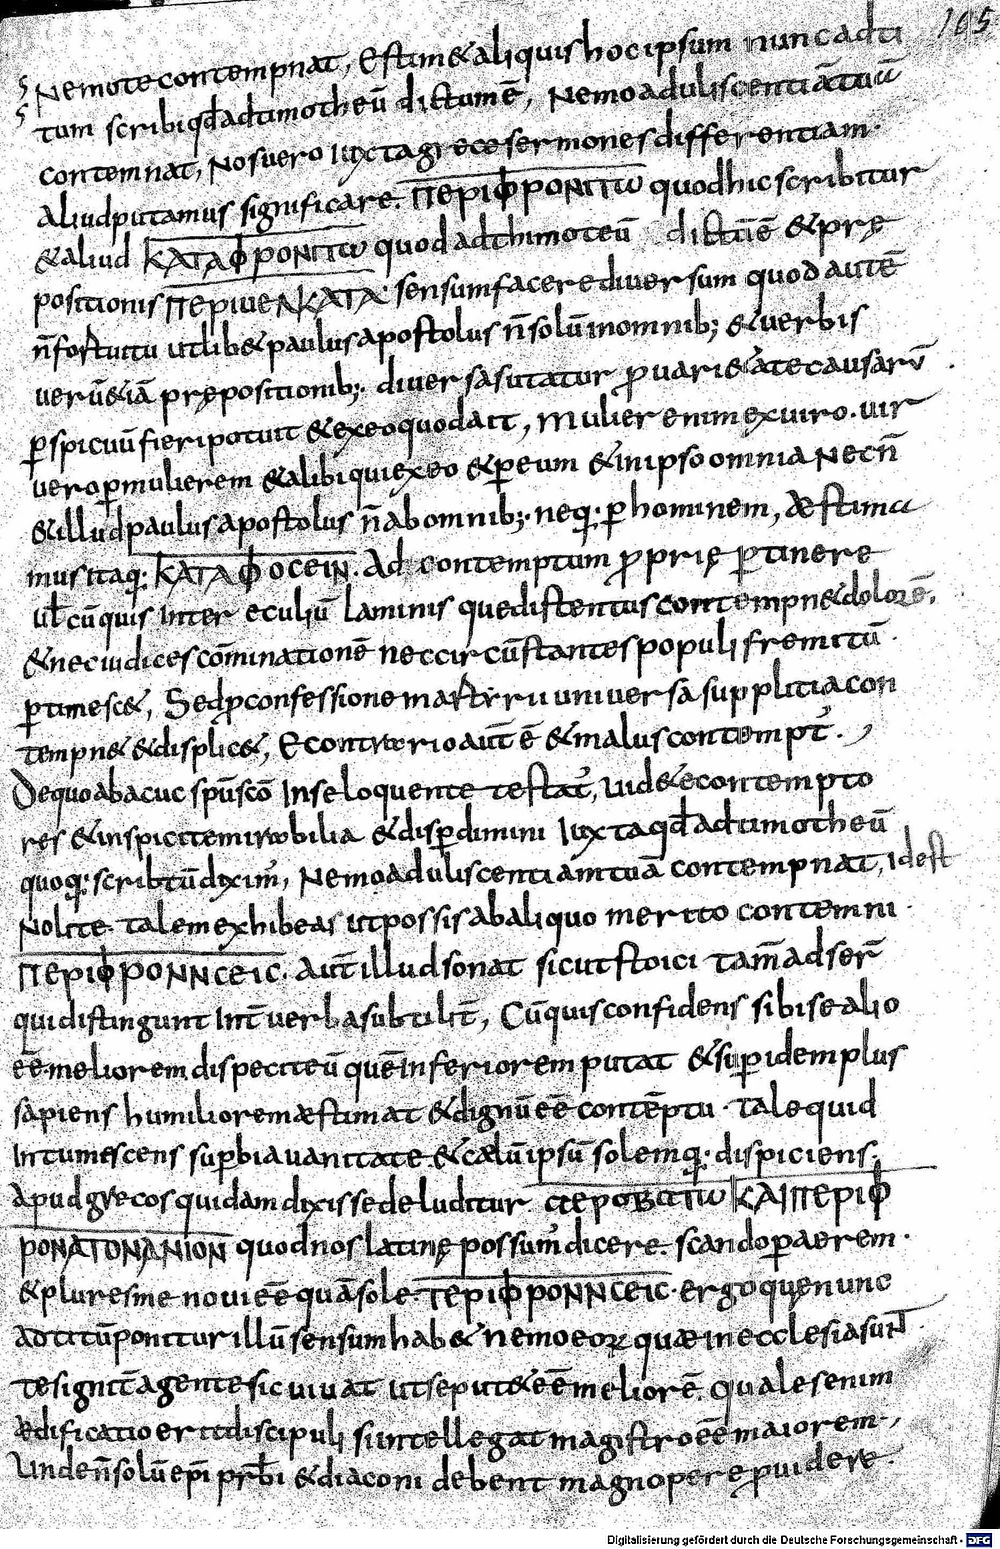 105
Nemo te contempnat, Estim& aliquis hoc ipsum nunc ad ti
tum scribi qđ ad timotheū dictum ē, Nemo aduliscentiā tuā
contemnat, Nos uero iuxta grece sermones differentiam.
Aliud putamus significare. ΠΕΡΙΦΡΟΝΙΤΩ quod hic scribitur
& aliud ΚΑΤΑΦΡΟΝΙΤΩ quod ad thimoteū dictū ē & pre
positionis ΠΕΡΙ uel ΚΑΤΑ. sensum facere diuersum quod autē
n̄ fortuitu utlib& paulus apostolus n̄ solū in omnib; & uerbis
uerū &iā prepositionib;. diuersas utatur ꝓ uari&ate causarū
ꝑspicuū fieri potuit & ex eo quod ait, Mulier enim ex uiro. uir
uero ꝑ mulierem & alibi qui ex eo & per eum & in ipso omnia Nec n̄
& illud paulus apostolus n̄ ab omnib;. neq;. ꝑ hominem, Æstima
mus itaq;. ΚΑΤΑΦΟCΕΙΝ. Ad contemptum ꝓprię ꝑtinere
uł cū quis inter eculiū laminis que distentus contempn& dolorē,
& nec iudices cōminationē nec circūstantes populi fremitū.
ꝑtimesc&, Sed ꝓ confessione martyrii uniuersa supplitia con
tempn& & displic&, E contrario aut̄ ē & malus contempt᷒.
De quo abacuc sp̄u sc̄o in se loquente testat᷒, uid&e contempto
res & inspicite mirabilia & disꝑdimini Iuxta qđ ad timotheū
quoq;. scribtū dixim᷒, Nemo aduliscentiam tuā contempnat, Idest
Nolite talem exhibeas ut possis ab aliquo merito contemni.
ΠΕΡΙΦΡΟΝΝCΕΙC. aut̄ illud sonat sicut stoici tam̄ adser̄
qui distingunt int̄ uerba subtilit̄, Cū quis confidens sibi se alio
eē meliorem dispecit eū quē inferiorem putat & suꝑ idem plus
sapiens humiliorem æstimat & dignū eē contēptu. tale quid
Intumescens suꝑbia uanitate. & cælū ipsū solemq;. dispiciens;
Apud grecos quidam dixisse deluditur ΑΕΡΟΒΑΤΩ ΚΑΙ ΠΕΡΙΦ
ΡΟΝΑΤΟΝΑΝΙΟΝ quod nos latinę possum᷒ dicere. scando ꝑ aerem.
& plures me noui eē quā sole. ΠΕΡΙΦΡΟΝΝCΕΙC. ergo quę nunc
ad titū ponitur illū sensum hab& nemo eoꝝ quæ in ecclesia sunt
te signit̄ agente sic uiuat ut se put& eē meliorē. Qualis enim
ædificatio erit discipuli si intellegat magistro eē maiorem,
Unde n̄ solū ep̄i pr̄bi & diaconi debent magnopere ꝓuidere.
Digitalisierung gefördert durch die Deutsche Forschungsgemeinschaft - DFG